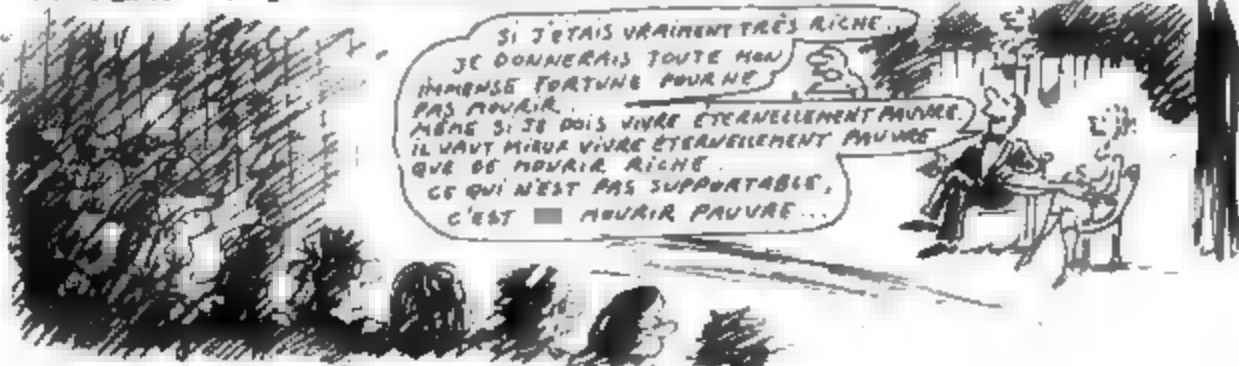 SI J'ÉTAIS VRAIMENT TRÈS RICHE...
JE DONNERAIS TOUTE MON
IMMENSE FORTUNE POUR NE
PAS MOURIR.
MÊME SI JE DOIS VIVRE ÉTERNELLEMENT PAUVRE.
IL VAUT MIEUX VIVRE ÉTERNELLEMENT PAUVRE
QUE DE MOURIR RICHE.
CE QUI N'EST PAS SUPPORTABLE,
C'EST MOURIR PAUVRE...